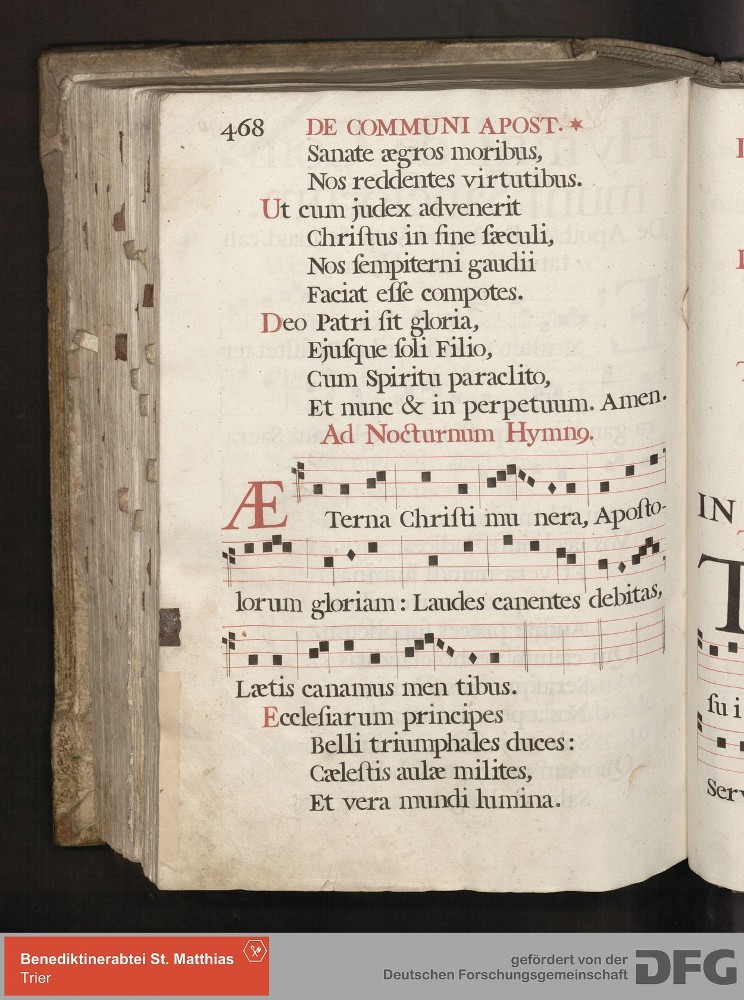 468 DE COMMUNI APOST. ✶
Sanate ægros moribus,
Nos reddentes virtutibus.
Ut cum judex advenerit
Chriſtus in fine ſæculi,
Nos ſempiterni gaudii
Faciat eſſe compotes.
Deo Patri ſit gloria,
Ejuſque ſoli Filio,
Cum Spiritu paraclito,
Et nunc & in perpetuum. Amen.
Ad Nocturnum Hymnꝰ.
Æ Terna Chriſti mu nera, Apoſto-
lorum gloriam: Laudes canentes debitas,
Lætis canamus men tibus.
Eccleſiarum principes
Belli triumphales duces:
Cæleſtis aulæ milites,
Et vera mundi lumina.
IN
T
ſu i
Serv
Benediktinerabtei St. Matthias
Trier
gefördert von der
Deutschen Forschungsgemeinschaft DFG